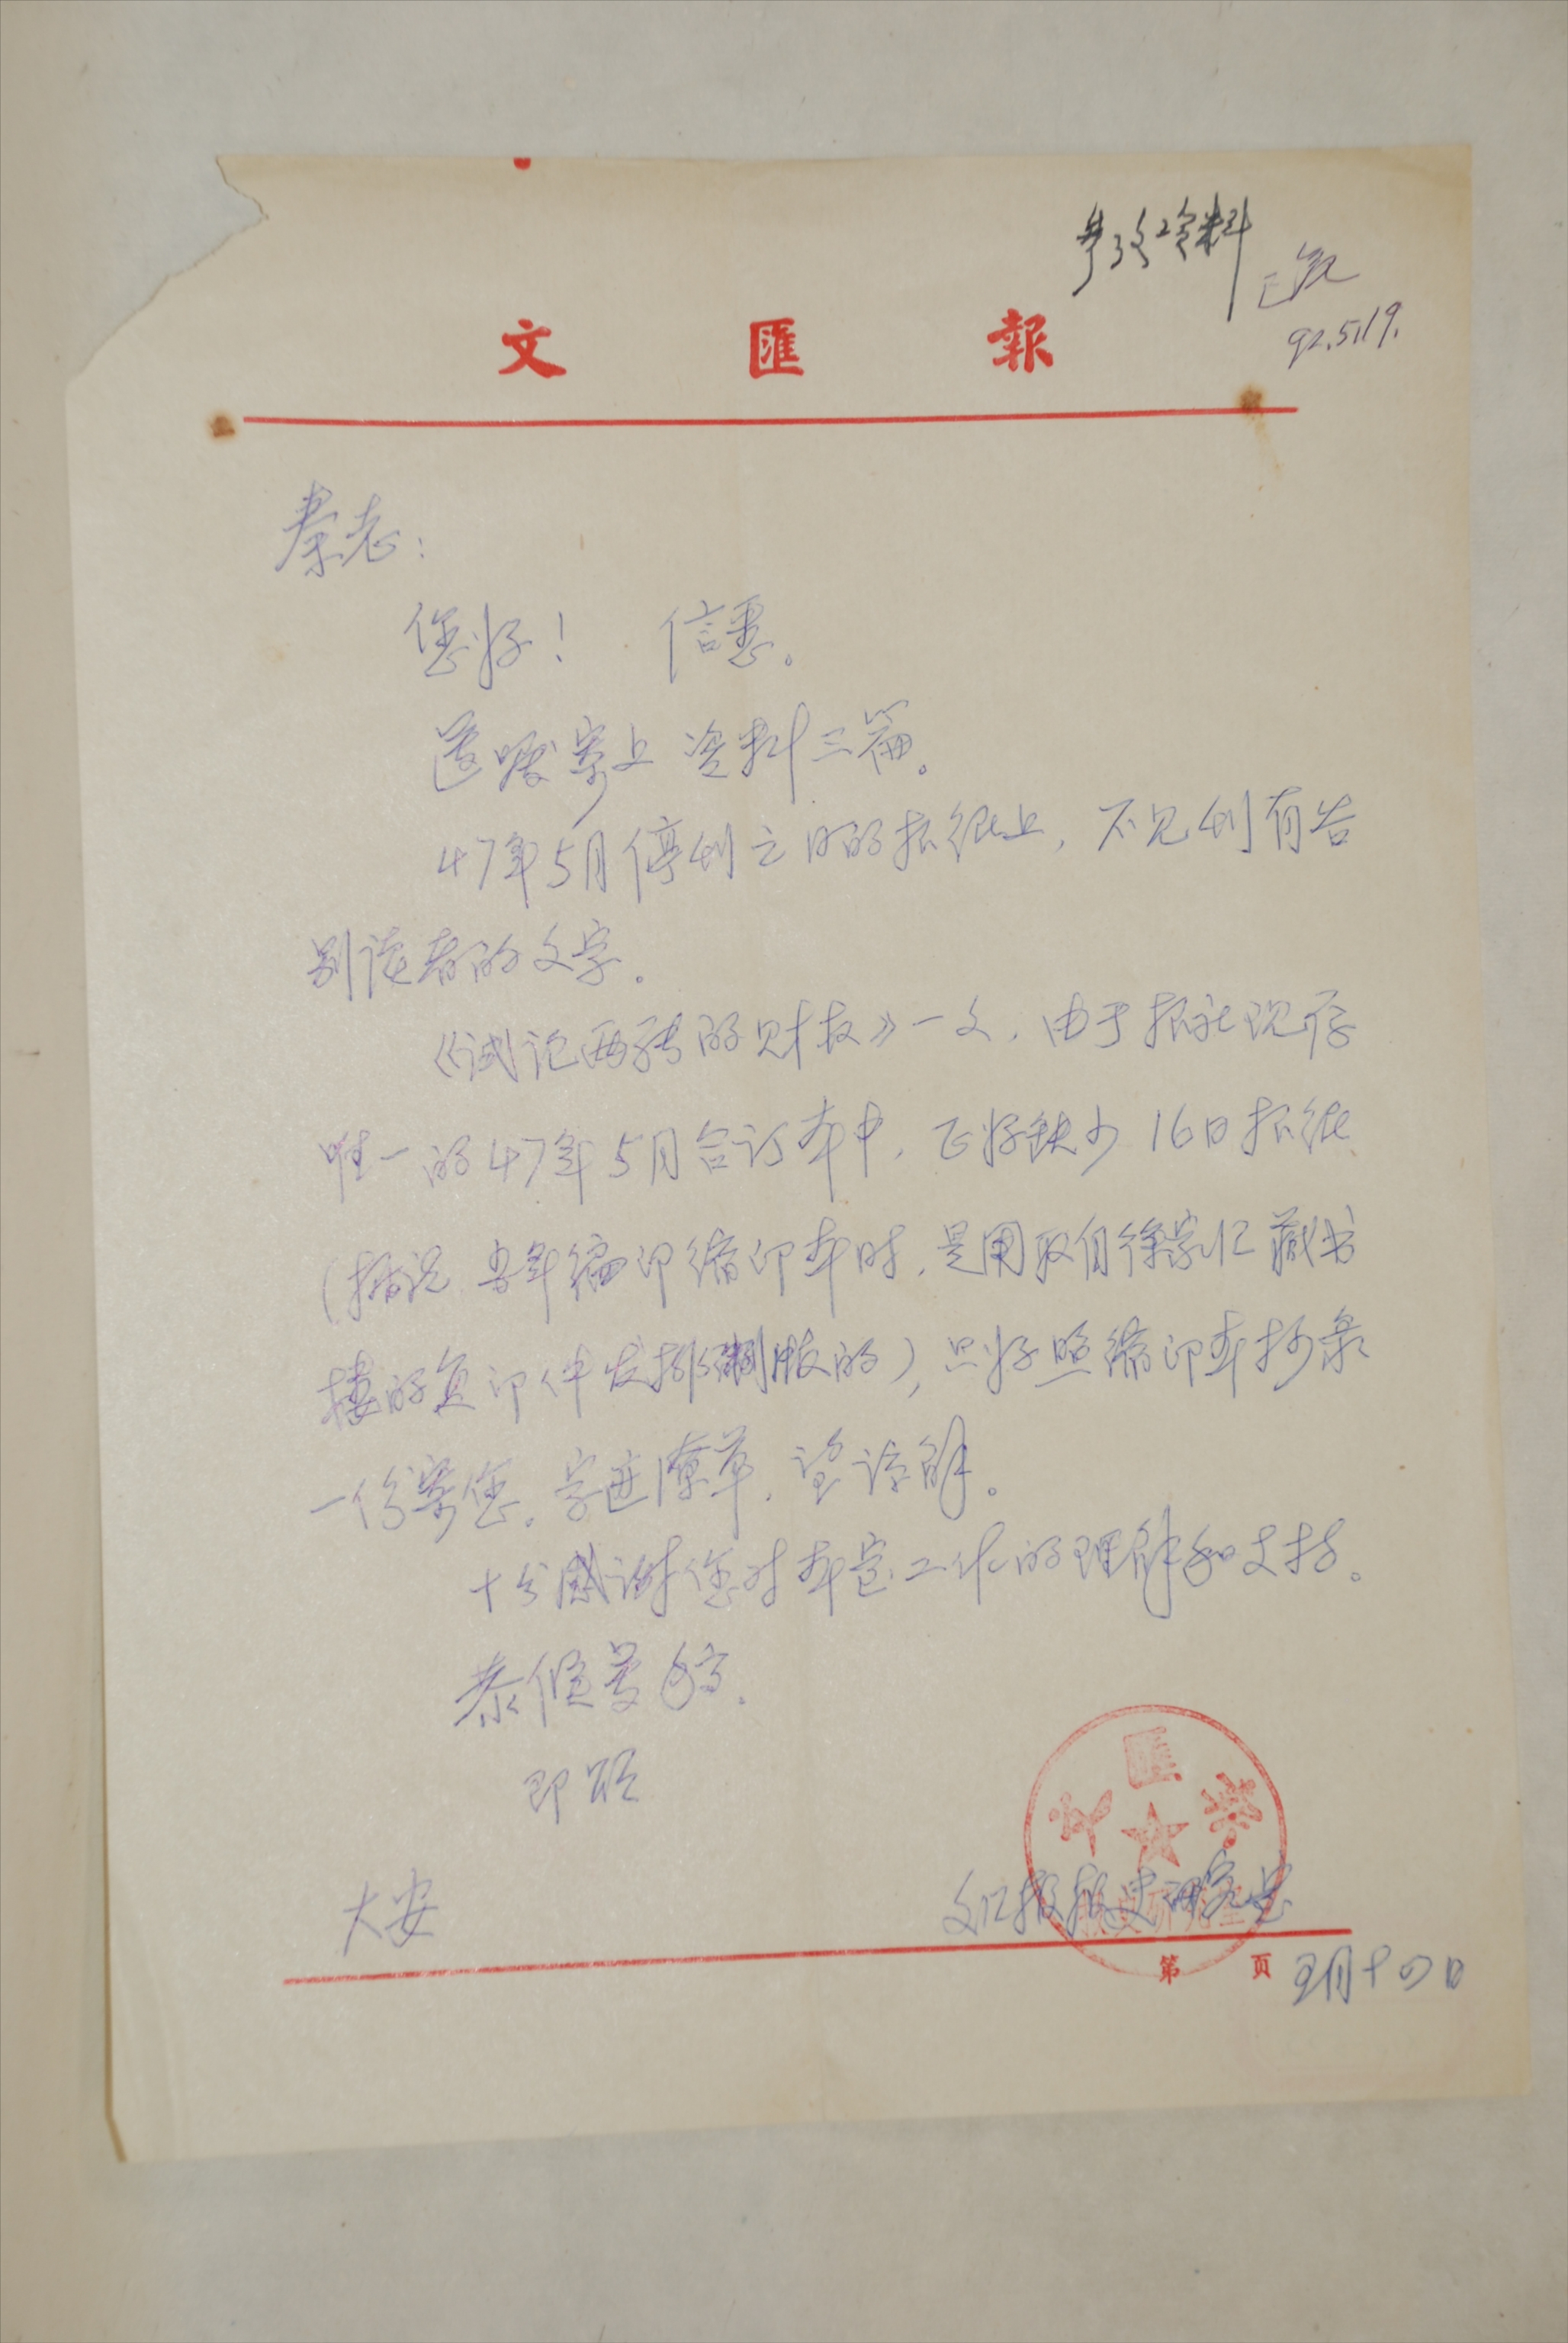 参考资料
已复
92.5.19.
文匯報
秦老：
您好！ 信悉。
遵嘱寄上资料三篇。
47年5月停刊之日的报纸上，不见刊有告
别读者的文字。
《试论西药的财权》一文，由于报社现存
唯一的47年5月合订本中，正好缺少16日报纸
(据说当年编印缩印本时，是用取自徐家汇藏书
楼的复印件发排制版的)，只好照缩印本抄录
一份寄您。字迹潦草，望谅解。
十分感谢您对本室工作的理解和支持。
恭候
即颂
大安
文匯報
文汇报报史研究室
第 页
五月十四日